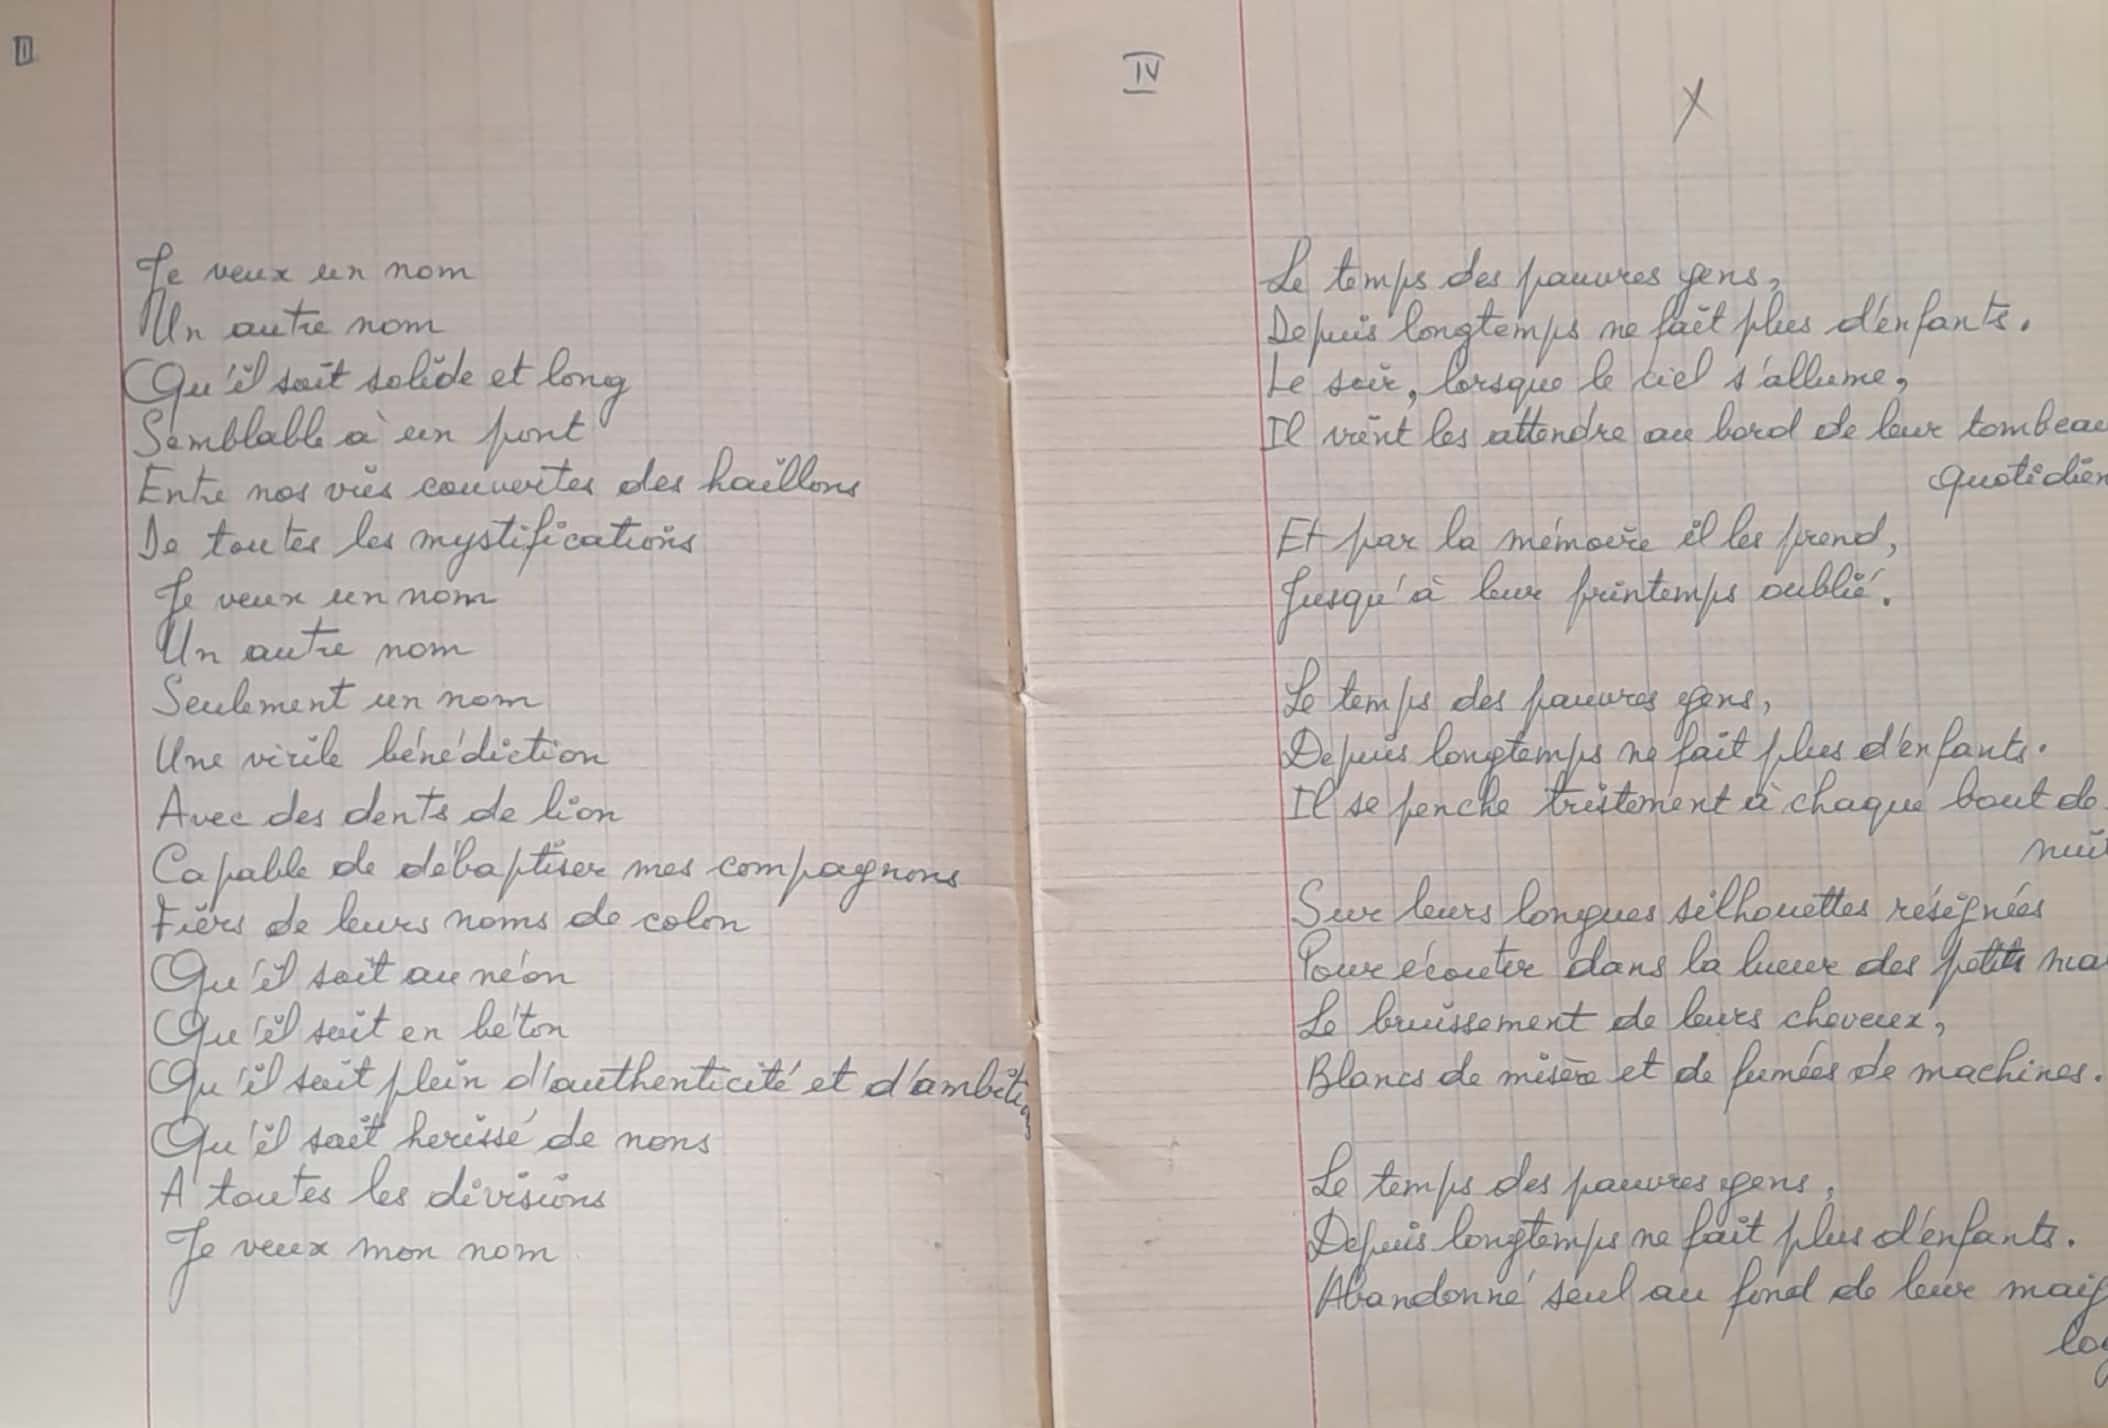 II
Je veux un nom
Un autre nom
Qu'il soit solide et long
Semblable à un pont
Entre nos vies couvertes des haillons
De toutes les mystifications
Je veux un nom
Un autre nom
Seulement un nom
Une virile bénédiction
Avec des dents de lion
Capable de débaptiser mes compagnons
Fiers de leurs noms de colon
Qu'il soit au néon
Qu'il soit en béton
Qu'il soit plein d'authenticité et d'ambitions
Qu'il soit herissé de nons
A toutes les divisions
Je veux mon nom
IV
X
Le temps des pauvres gens,
Depuis longtemps ne fait plus d'enfants.
Le soir, lorsque le ciel s'allume,
Il vient les attendre au bord de leur tombeau
quotidien
Et par la mémoire il les prend,
Jusqu'à leur printemps oublié.
Le temps des pauvres gens,
Depuis longtemps ne fait plus d'enfants.
Il se penche tristement à chaque bout de
nuit
Sur leurs longues silhouettes résignées
Pour écouter dans la lueur des petits ma
Le bruissement de leurs cheveux,
Blancs de misère et de fumées de machines.
Le temps des pauvres gens,
Depuis longtemps ne fait plus d'enfants.
Abandonné seul au fond de leur maig
log